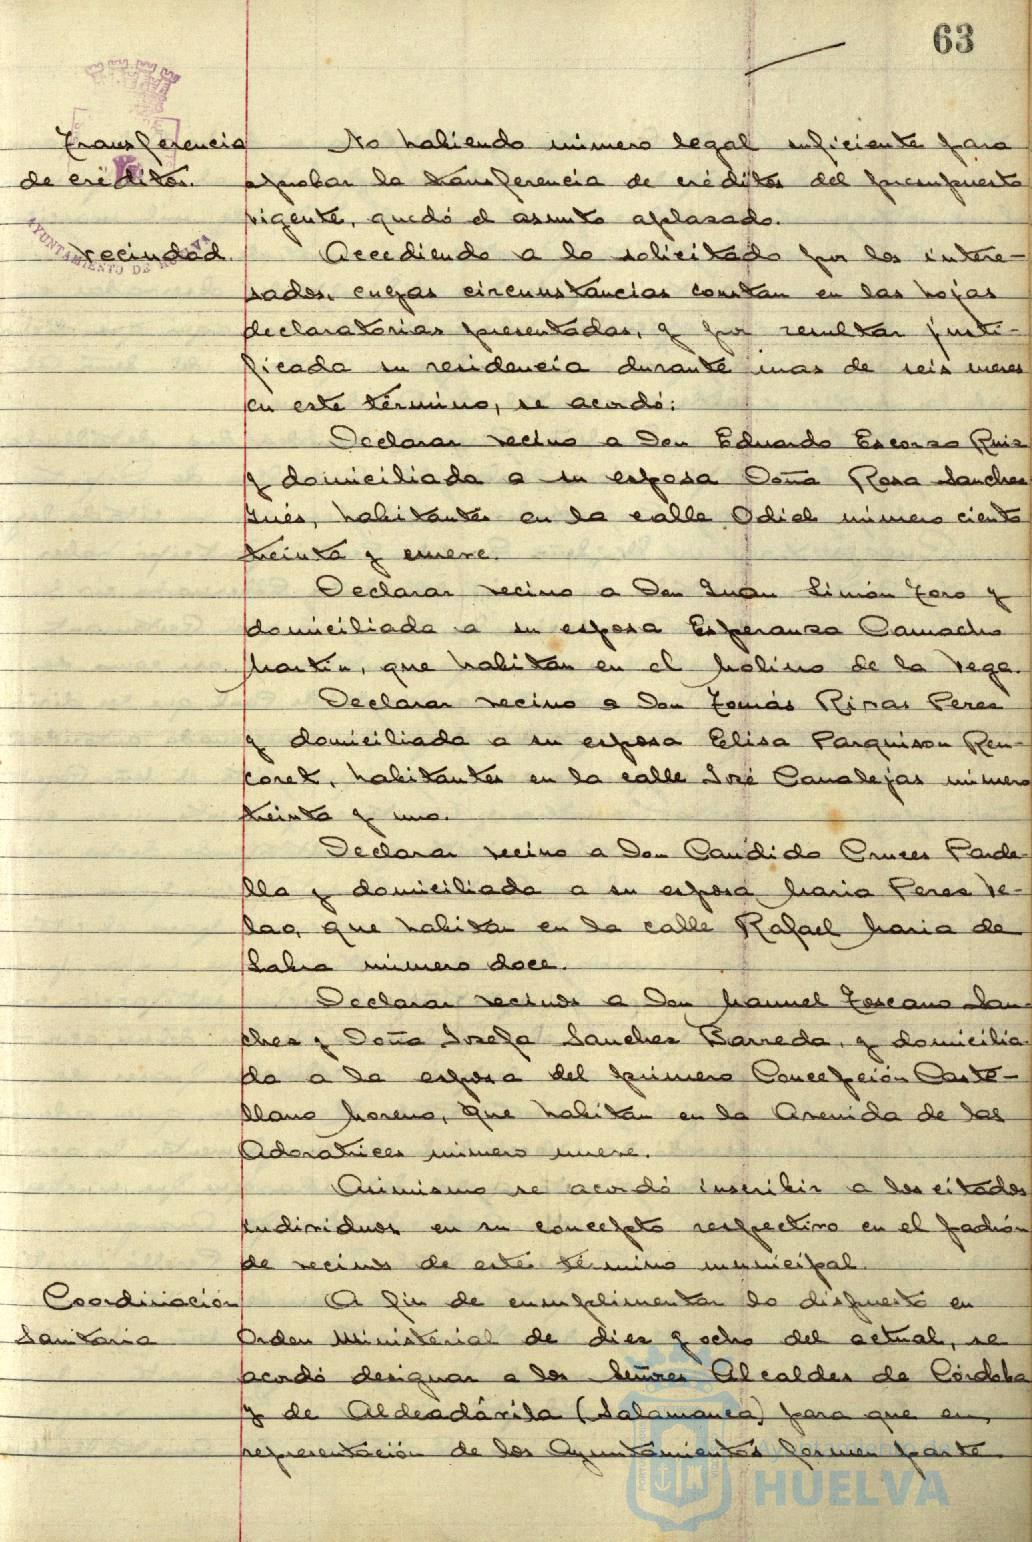 63
Transferencia
de créditos.
No habiendo número legal suficiente para
aprobar la transferencia de créditos del presupuesto
vigente, quedó el asunto aplazado.
AYUNTAMIENTO DE HUELVA
Vecindad.
Accediendo a lo solicitado por los intere-
sados, cuyas circunstancias constan en las hojas
declaratorias presentadas, y por resultar justi-
ficada su residencia durante mas de seis meses
en este término, se acordó:
Declarar vecino a Don Eduardo Escorza Ruiz
y domiciliada a su esposa Doña Rosa Sanchez
Inés, habitantes en la calle Odiel número ciento
treinta y nueve.
Declarar vecino a Don Juan Simón Toro y
domiciliada a su esposa Esperanza Camacho
Martin, que habitan en el Molino de la Vega.
Declarar vecino a Don Tomás Rivas Perez
y domiciliada a su esposa Elisa Parquison Ren-
coret, habitantes en la calle José Canalejas número
treinta y uno.
Declarar vecino a Don Candido Cruces Parde-
lla y domiciliada a su esposa Maria Perez Ve-
lao, que habitan en la calle Rafael Maria de
Labra número doce.
Declarar vecinos a Don Manuel Toscano San-
chez y Doña Josefa Sanchez Barreda, y domicilia-
da a la esposa del primero Concepción Caste-
llano Moreno, que habitan en la Avenida de las
Adoratrices número nueve.
Asimismo se acordó inscribir a los citados
individuos en su concepto respectivo en el padrón
de vecinos de este término municipal.
Coordinación
Sanitaria
A fin de cumplimentar lo dispuesto en
Orden Ministerial de diez y ocho del actual, se
acordó designar a los Señores Alcaldes de Córdoba
y de Aldeadávila (Salamanca) para que en
representación de los Ayuntamientos formen parte
Ayuntamiento de
HUELVA